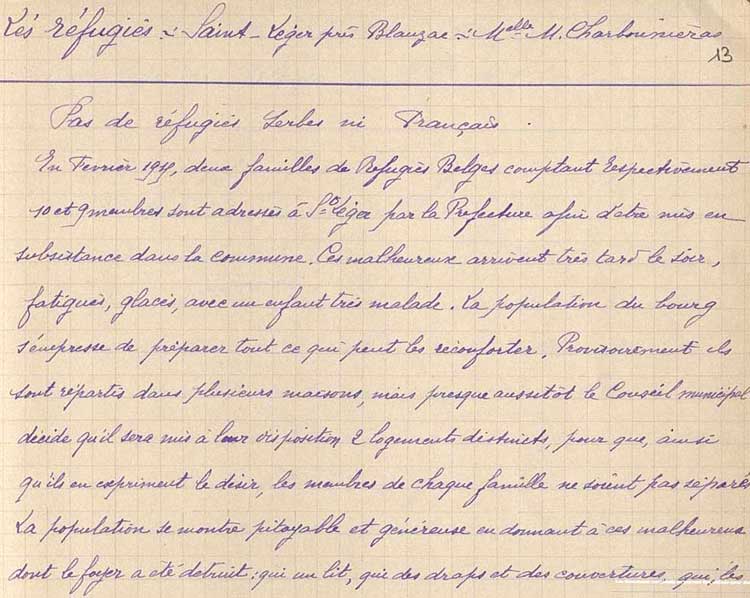 Les réfugiés .:. Saint-Léger près Blanzac .:. Melle M. Charbonniéras
13
Pas de réfugiés Serbes ni Français.
En Février 1915, deux familles de Réfugiés Belges comptant respectivement
10 et 9 membres sont adressés à St Léger par la Préfecture afin d'être mis en
subsistance dans la commune. Ces malheureux arrivent très tard le soir,
fatigués, glacés, avec un enfant très malade. La population du bourg
s'empresse de préparer tout ce qui peut les réconforter. Provisoirement ils
sont répartis dans plusieurs maisons, mais presque aussitôt le Conseil municipal
décide qu'il sera mis à leur disposition 2 logements distincts, pour que, ainsi
qu'ils en expriment le désir, les membres de chaque famille ne soient pas séparés
La population se montre pitoyable et généreuse en donnant à ces malheureux
dont le foyer a été détruit : qui un lit, qui des draps et des couvertures, qui, les